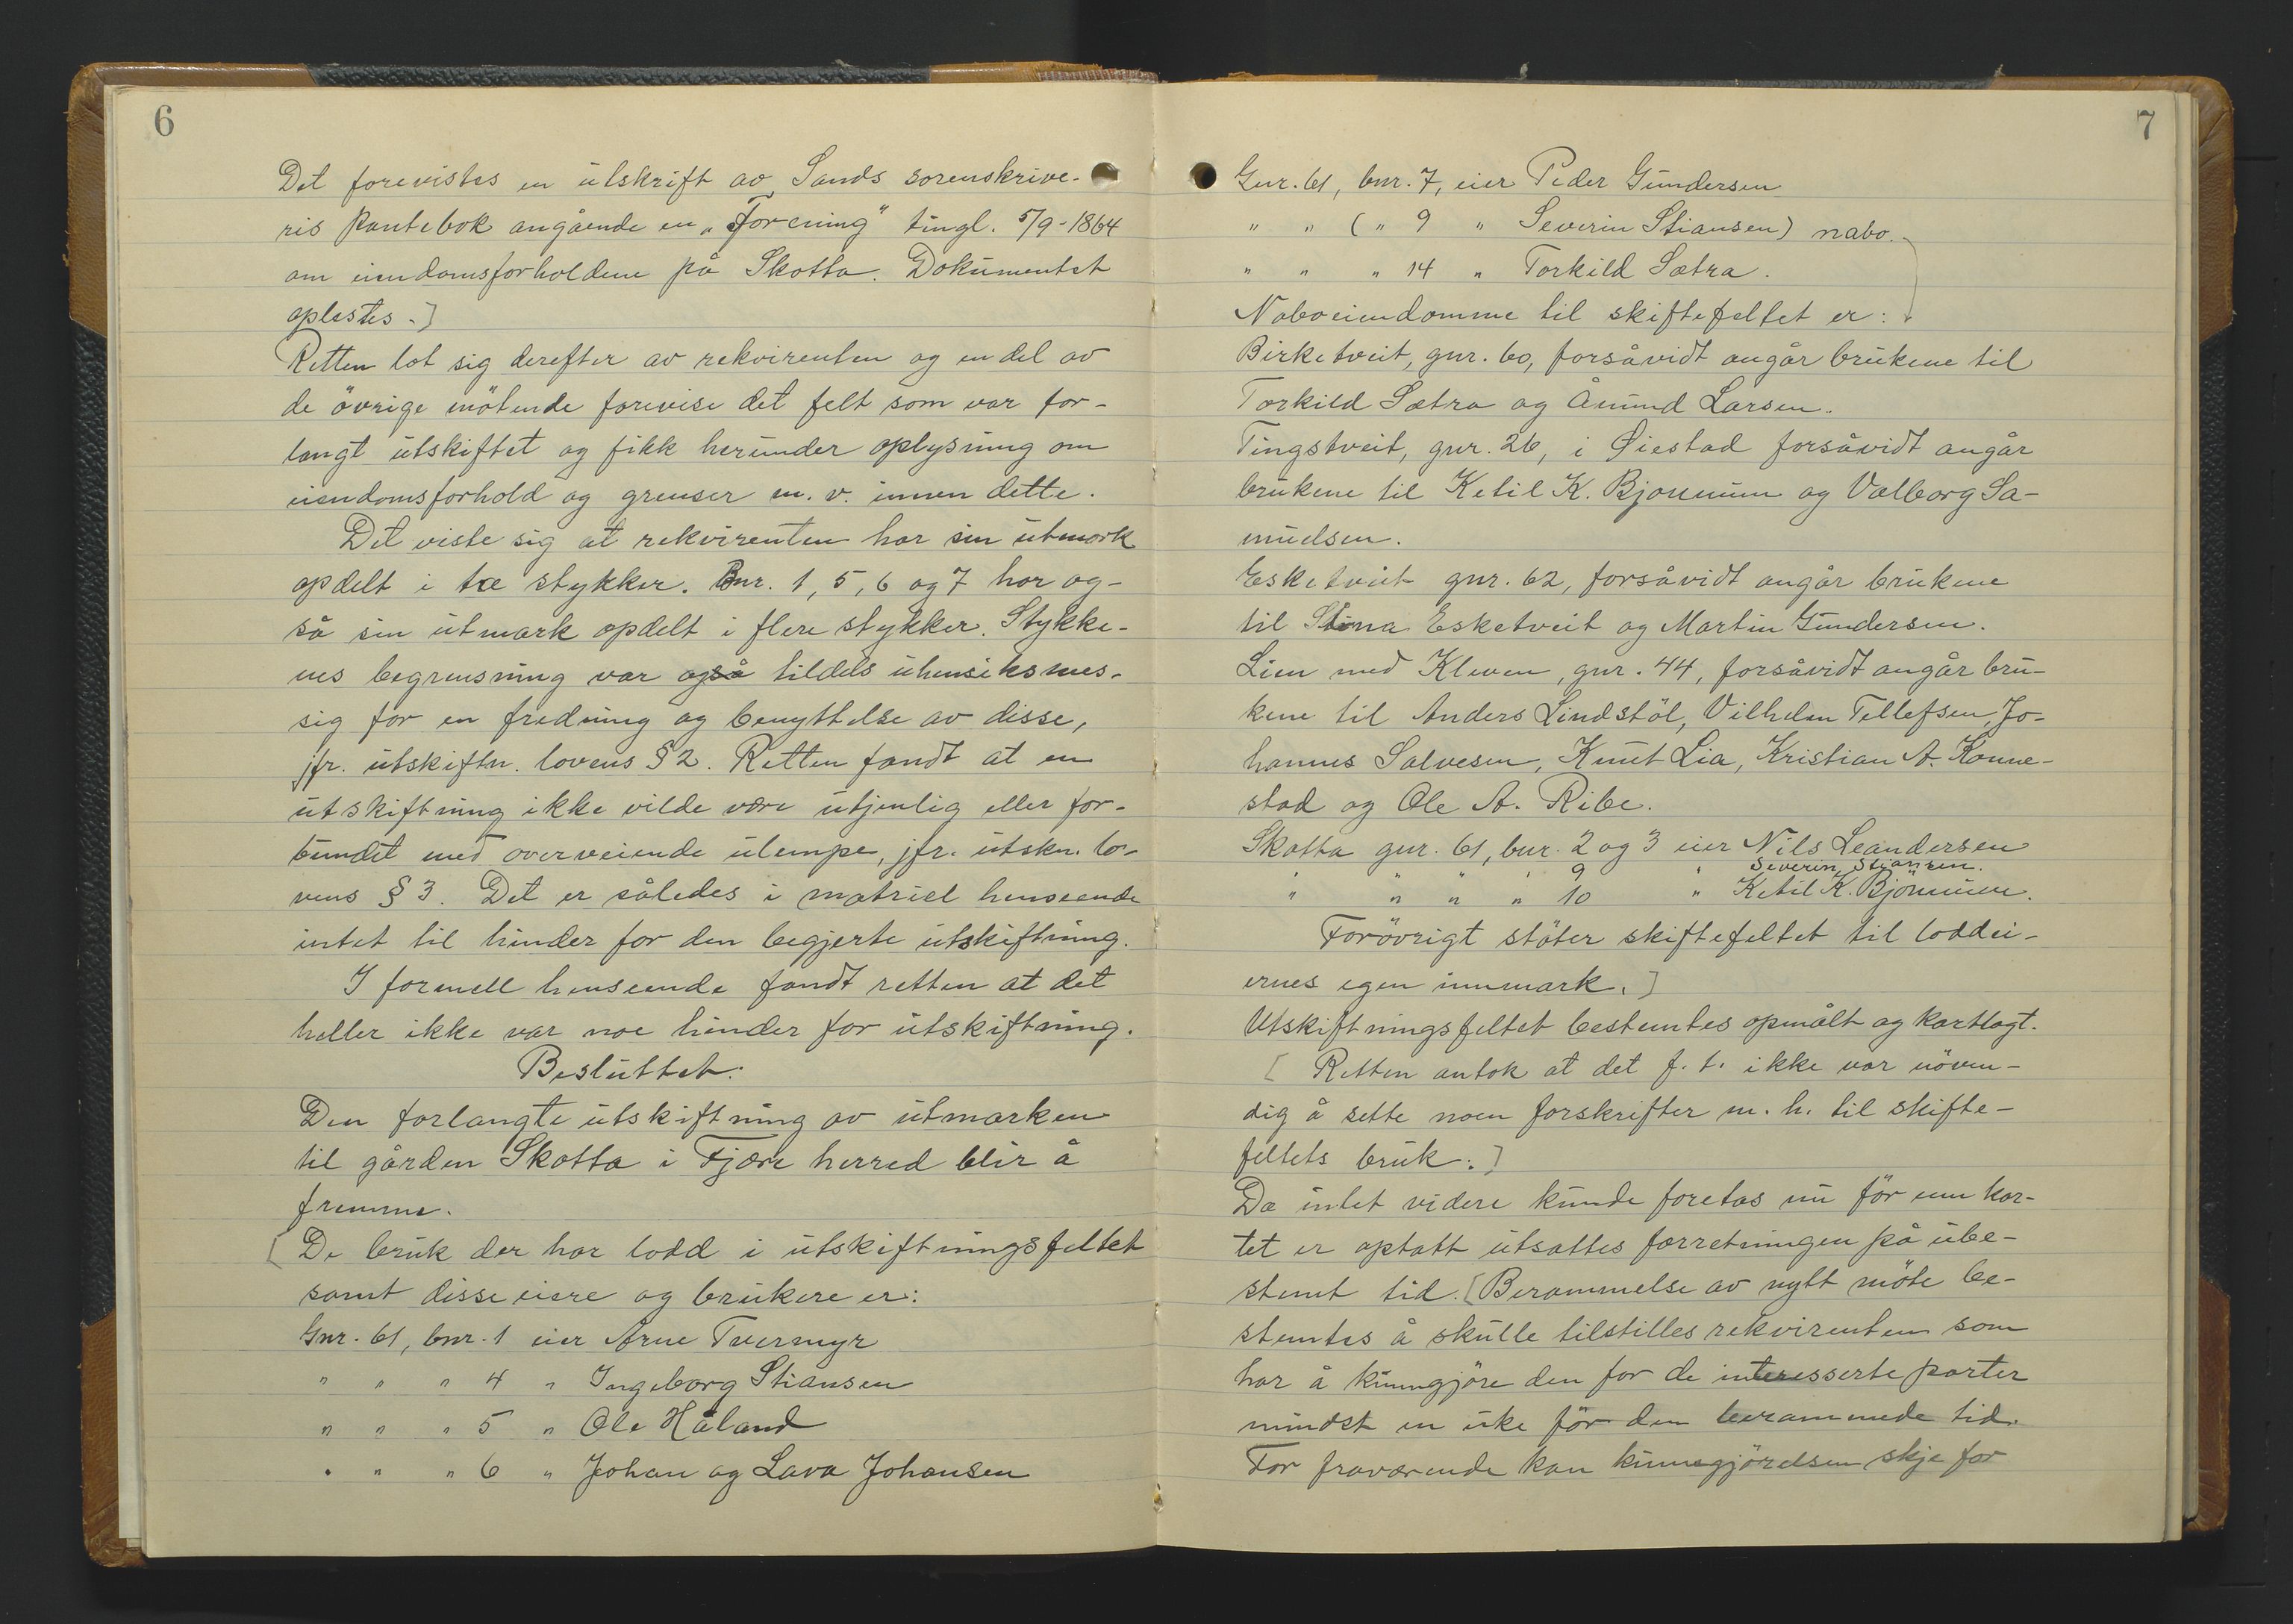 6
Det forevistes en utskrift av Sands sorenskrive-
ris pantebok angående en „Forening" tingl. 5/9-1864
om eiendomsforholdene på Skotta. Dokumentet
oplestes.]
Retten lot sig derefter av rekvirenten og en del av
de övrige mötende forevise det felt som var for-
langt utskiftet og fikk herunder oplysning om
eiendomsforhold og grenser m. v. innen dette.
Det viste sig at rekvirenten har sin utmark
opdelt i tre stykker. Bnr. 1, 5, 6 og 7 har og-
så sin utmark opdelt i flere stykker. Stykke-
nes begrensning var også tildels uhensiksmes-
sig for en fredning og benyttelse av disse,
jfr. utskiftn. lovens § 2. Retten fandt at en
utskiftning ikke vilde være utjenlig eller for-
bundet med overveiende ulempe, jfr. utskn. lo-
vens § 3. Det er således i matriel henseende
intet til hinder for den begjerte utskiftning.
I formell henseende fandt retten at det
heller ikke var noe hinder for utskiftning.
Besluttet:
Den forlangte utskiftning av utmarken
til gården Skotta i Fjære herred blir å
fremme.
[De bruk der har lodd i utskiftningsfeltet
samt disse eiere og brukere er:
Gnr. 61, bnr. 1 eier Arne Tvermyr
" " " 4 " Ingeborg Stiansen
" " " 5 " Ole Håland
" " " 6 " Johan og Lava Johansen
7
Gnr. 61, bnr. 7, eier Peder Gundersen
" " ( " 9 " Severin Stiansen) nabo.
" " " 14 " Torkild Sætra.
Naboeiendomme til skiftefeltet er:
Birketveit, gnr. 60, forsåvidt angår brukene til
Torkild Sætra og Åmund Larsen.
Tingstveit, gnr. 26, i Øiestad forsåvidt angår
brukene til Ketil K. Bjonnum og Valborg Sa-
muelsen.
Esketveit gnr. 62, forsåvidt angår brukene
til Stina Esketveit og Martin Gundersen.
Lien med Kleven, gnr. 44, forsåvidt angår bru-
kene til Anders Lindstöl, Vilhelm Tellefsen, Jo-
hannes Salvesen, Knut Lia, Kristian A. Konne-
stad og Ole A. Ribe.
Skotta gnr. 61, bnr. 2 og 3 eier Nils Leandersen
" " " " 9 " Severin Stiansen.
" " " " 10 " Ketil K. Bjönnum.
Forövrigt stöter skiftefeltet til loddei-
ernes egen innmark.]
Utskiftningsfeltet bestemtes opmålt og kartlagt.
[Retten antok at det f. t. ikke var növen-
dig å sette noen forskrifter m. h. til skifte-
feltets bruk.]
Da intet videre kunde foretas nu för enn kar-
tet er optatt utsattes forretningen på ube-
stemt tid. [Berammelse av nytt möte be-
stemtes å skulle tilstilles rekvirenten som
har å kunngjöre den for de interesserte parter
mindst en uke för den berammede tid.
For fraværende kan kunngjörelsen skje for